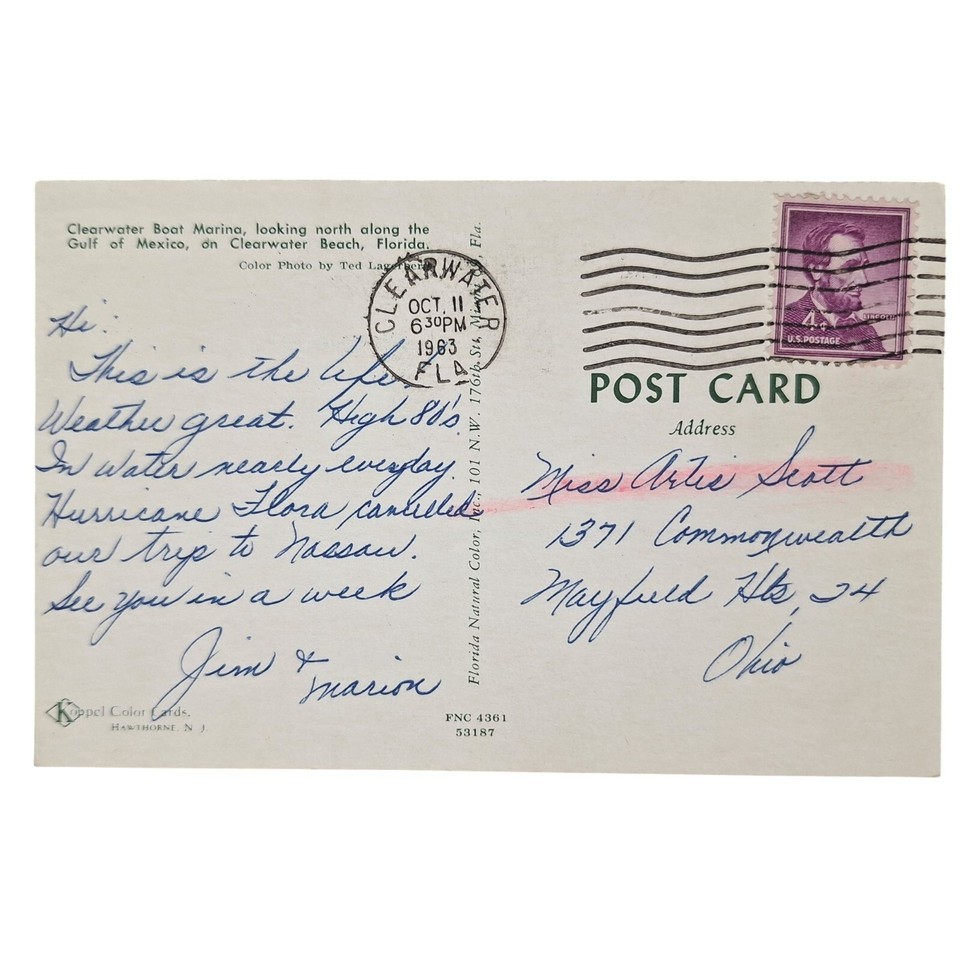 Clearwater Boat Marina, looking north along the
Gulf of Mexico, on Clearwater Beach, Florida.
Color Photo by Ted Lagerberg
CLEARWATER
OCT. 11
6 30 PM
1963
FLA.
4¢
LINCOLN
U.S. POSTAGE
Hi:
This is the life
Weather great. High 80's
In water nearly everyday.
Hurricane Flora cancelled
our trip to Nassau.
See you in a week
Jim &
Marion
Koppel Color Cards.
HAWTHORNE, N. J.
Florida Natural Color, Inc., 101 N.W. 176th St., Fla.
FNC 4361
53187
POST CARD
Address
Miss Artis Scott
1371 Commonwealth
Mayfield Hts, 24
Ohio